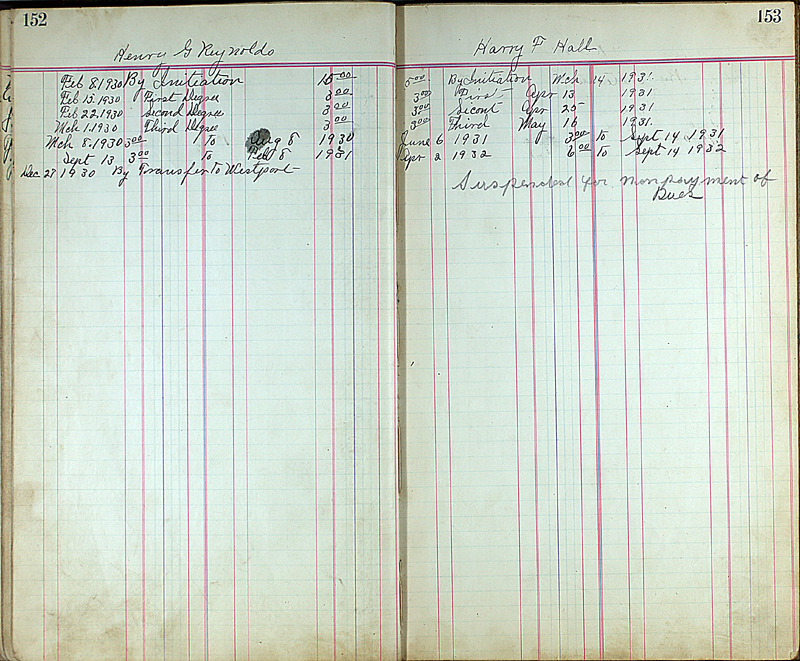 152
Henry G Reynolds
Feb 8, 1930 By Initiation 15 00
Feb 15, 1930 First Degree 3 00
Feb 22, 1930 Second Degree 3 00
Mch 1, 1930 Third Degree 3 00
Mch 8, 1930 3 00 To Aug 8 1930
Sept 13 3 00 To Feb 8 1931
Dec 27 1930 By Transfer to Westport
153
Harry F Hall
5 00 By Initiation Mch 14 1931.
3 00 First Apr 13 1931
3 00 Secont Apr 25 1931
3 00 Third May 16 1931.
June 6 1931 3 00 to Sept 14 1931
Apr 2 1932 6 00 to Sept 14 1932
Suspended for nonpayment of
Dues